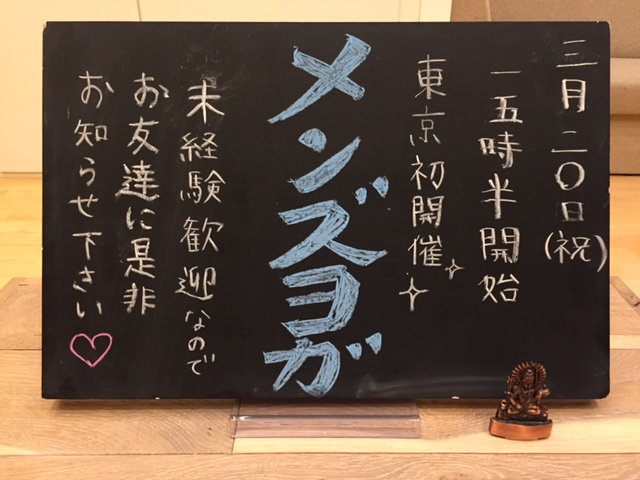 三月二〇日(祝)
一五時半開始
東京初開催
メンズヨガ
未経験歓迎なので
お友達に是非
お知らせ下さい